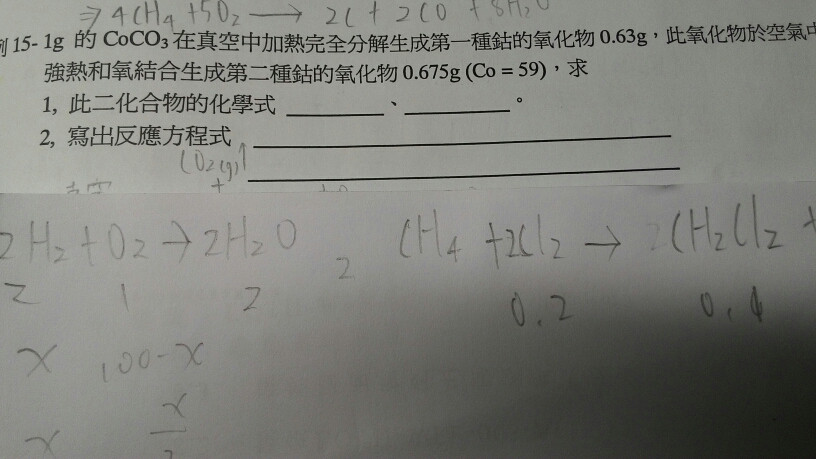 ⇒ 4CH₄ + 5O₂ → 2C + 2CO + 8H₂O
例 15- 1g 的 CoCO₃ 在真空中加熱完全分解生成第一種鈷的氧化物 0.63g，此氧化物於空氣中
強熱和氧結合生成第二種鈷的氧化物 0.675g (Co = 59)，求
1, 此二化合物的化學式 ________、________。
2, 寫出反應方程式
CO₂(g)↑
+
2H₂ + O₂ → 2H₂O CH₄ + 2Cl₂ → CH₂Cl₂ +
2 1 2 2 0.2 0.1
x 100-x
x x/2